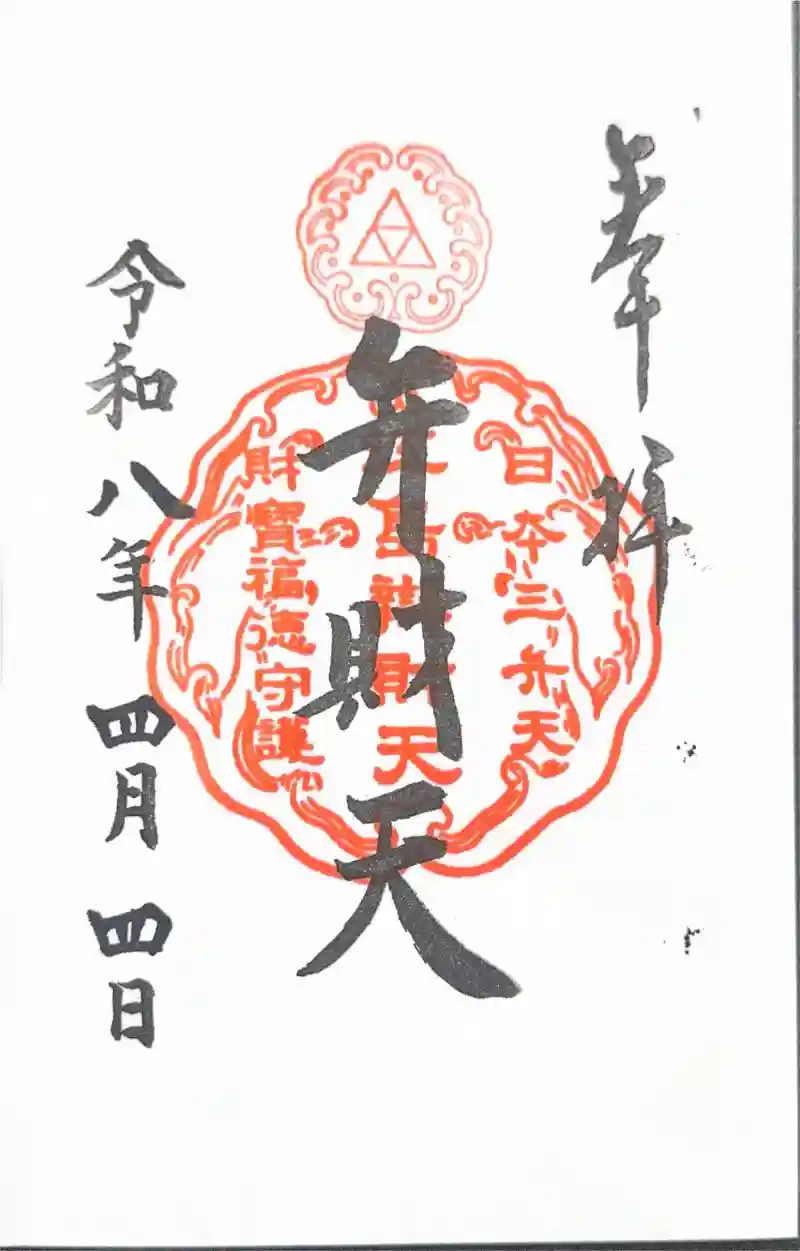 奉拝
日本三弁天
島辨財天
財寶福徳守護
弁財天
令和八年四月四日